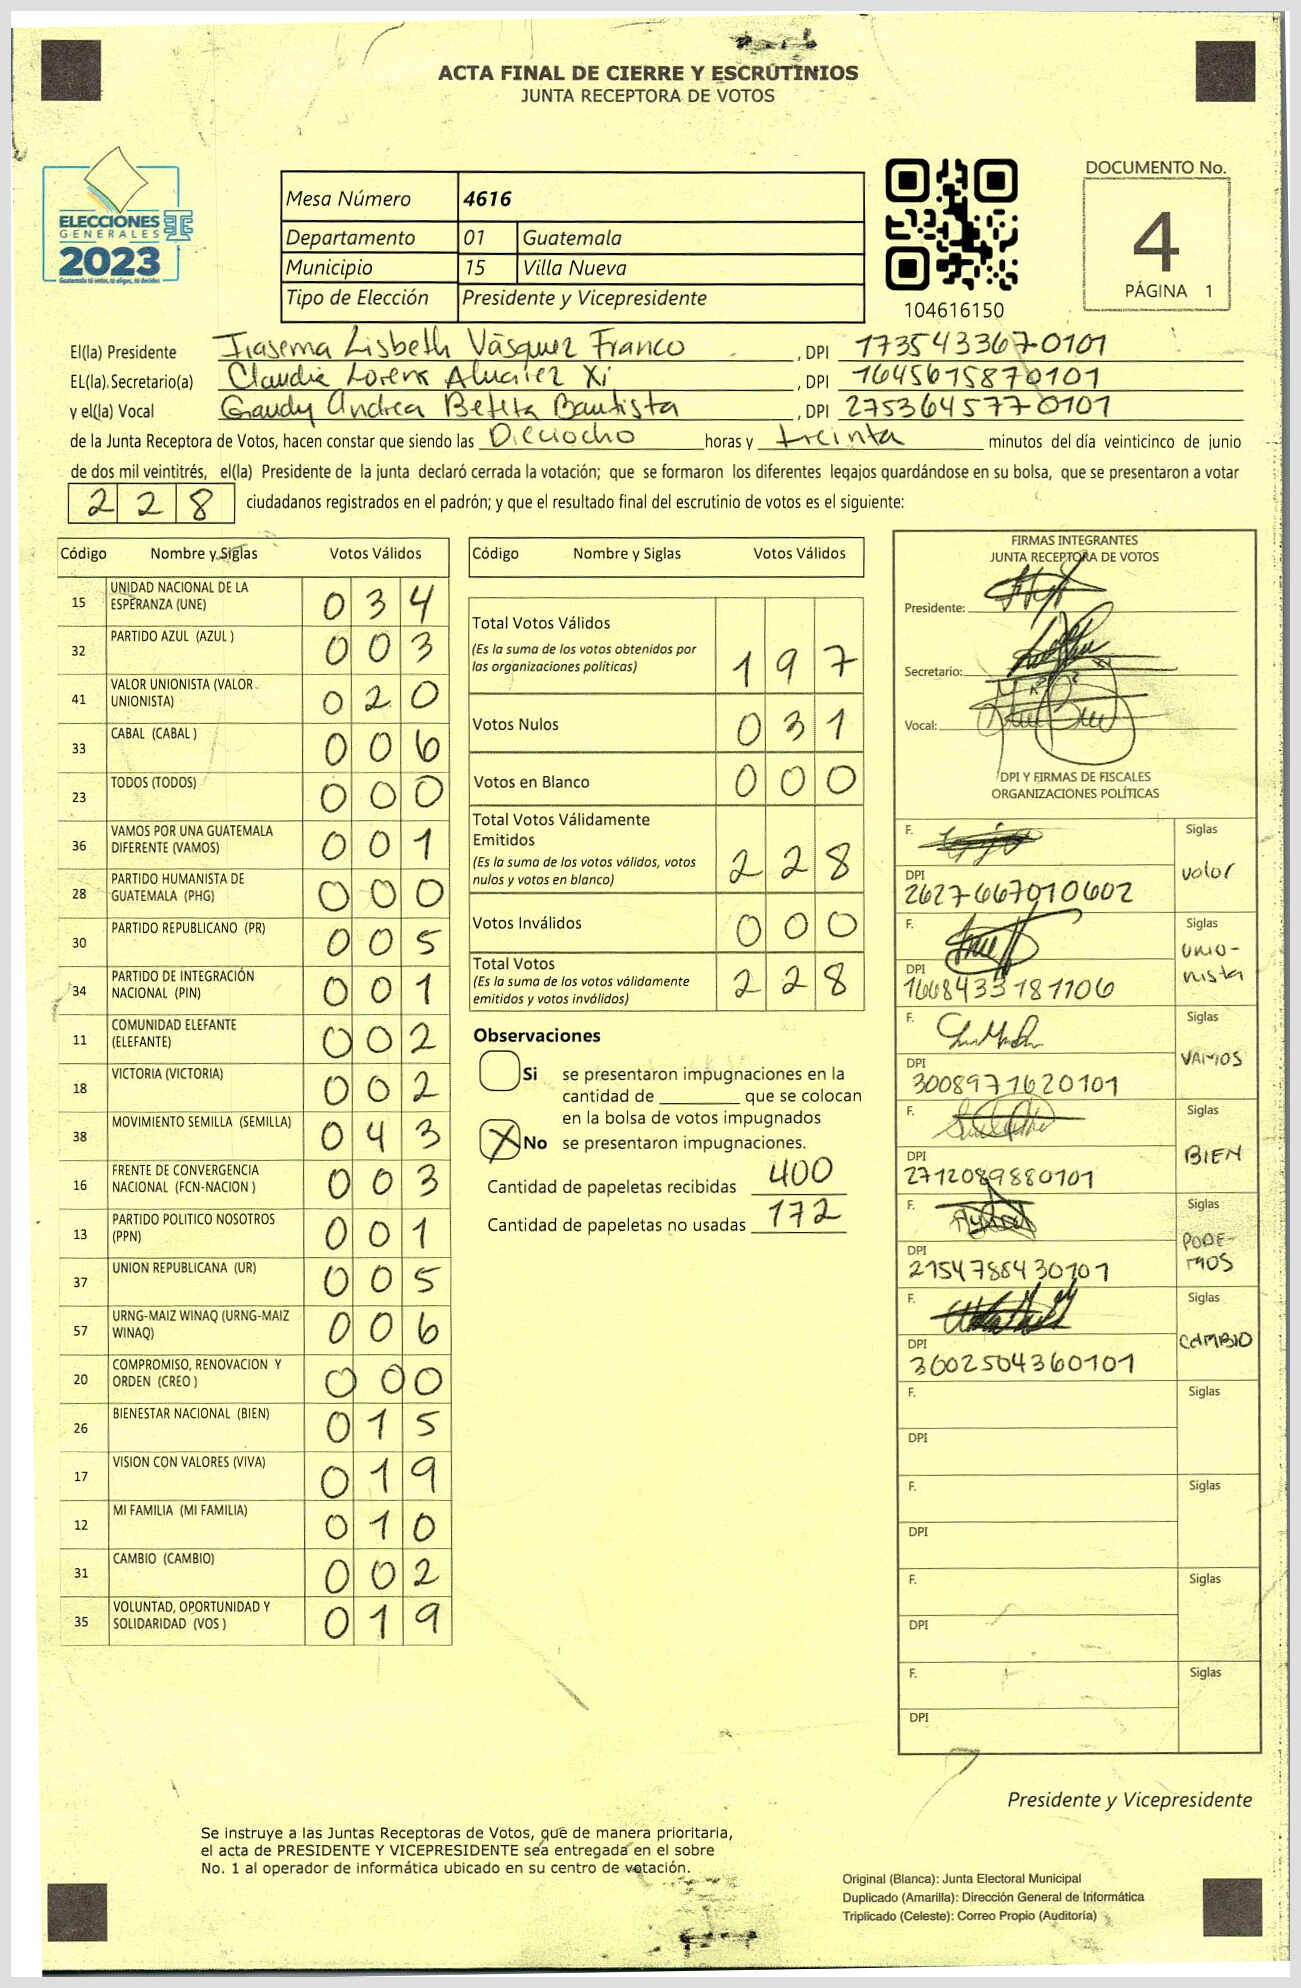 ACTA FINAL DE CIERRE Y ESCRUTINIOS
JUNTA RECEPTORA DE VOTOS
ELECCIONES
GENERALES
2023
Guatemala tú votas, tú eliges, tú decides
Mesa Número 4616
Departamento 01 Guatemala
Municipio 15 Villa Nueva
Tipo de Elección Presidente y Vicepresidente
104616150
DOCUMENTO No.
4
PÁGINA 1
El(la) Presidente Irasema Lisbeth Vásquez Franco, DPI 1735433670101
EL(la) Secretario(a) Claudia Lorena Alvarez Xi, DPI 1645615870101
y el(la) Vocal Gaudy Andrea Beteta Bautista, DPI 2753645770101
de la Junta Receptora de Votos, hacen constar que siendo las Dieciocho horas y treinta minutos del día veinticinco de junio
de dos mil veintitrés, el(la) Presidente de la junta declaró cerrada la votación; que se formaron los diferentes legajos guardándose en su bolsa, que se presentaron a votar
228 ciudadanos registrados en el padrón; y que el resultado final del escrutinio de votos es el siguiente:
Código Nombre y Siglas Votos Válidos
15 UNIDAD NACIONAL DE LA ESPERANZA (UNE) 034
32 PARTIDO AZUL (AZUL ) 003
41 VALOR UNIONISTA (VALOR UNIONISTA) 020
33 CABAL (CABAL ) 006
23 TODOS (TODOS) 000
36 VAMOS POR UNA GUATEMALA DIFERENTE (VAMOS) 001
28 PARTIDO HUMANISTA DE GUATEMALA (PHG) 000
30 PARTIDO REPUBLICANO (PR) 005
34 PARTIDO DE INTEGRACIÓN NACIONAL (PIN) 001
11 COMUNIDAD ELEFANTE (ELEFANTE) 002
18 VICTORIA (VICTORIA) 002
38 MOVIMIENTO SEMILLA (SEMILLA) 043
16 FRENTE DE CONVERGENCIA NACIONAL (FCN-NACION ) 003
13 PARTIDO POLITICO NOSOTROS (PPN) 001
37 UNION REPUBLICANA (UR) 005
57 URNG-MAIZ WINAQ (URNG-MAIZ WINAQ) 006
20 COMPROMISO, RENOVACION Y ORDEN (CREO ) 000
26 BIENESTAR NACIONAL (BIEN) 015
17 VISION CON VALORES (VIVA) 019
12 MI FAMILIA (MI FAMILIA) 010
31 CAMBIO (CAMBIO) 002
35 VOLUNTAD, OPORTUNIDAD Y SOLIDARIDAD (VOS ) 019
Código Nombre y Siglas Votos Válidos
Total Votos Válidos
(Es la suma de los votos obtenidos por
las organizaciones políticas) 197
Votos Nulos 031
Votos en Blanco 000
Total Votos Válidamente
Emitidos
(Es la suma de los votos válidos, votos
nulos y votos en blanco) 228
Votos Inválidos 000
Total Votos
(Es la suma de los votos válidamente
emitidos y votos inválidos) 228
Observaciones
Si se presentaron impugnaciones en la
cantidad de ________ que se colocan
en la bolsa de votos impugnados
X No se presentaron impugnaciones.
Cantidad de papeletas recibidas 400
Cantidad de papeletas no usadas 172
FIRMAS INTEGRANTES
JUNTA RECEPTORA DE VOTOS
Presidente:
Secretario:
Vocal:
DPI Y FIRMAS DE FISCALES
ORGANIZACIONES POLÍTICAS
F. Siglas valor
DPI 2627667010602
F. Siglas unio-
nista
DPI 1668433181106
F. Siglas VAMOS
DPI 3008971620101
F. Siglas BIEN
DPI 2712089880101
F. Siglas PODE-
MOS
DPI 2154788430101
F. Siglas CAMBIO
DPI 3002504360101
F. Siglas
DPI
F. Siglas
DPI
F. Siglas
DPI
F. Siglas
DPI
Presidente y Vicepresidente
Se instruye a las Juntas Receptoras de Votos, que de manera prioritaria,
el acta de PRESIDENTE Y VICEPRESIDENTE sea entregada en el sobre
No. 1 al operador de informática ubicado en su centro de votación.
Original (Blanca): Junta Electoral Municipal
Duplicado (Amarilla): Dirección General de Informática
Triplicado (Celeste): Correo Propio (Auditoría)